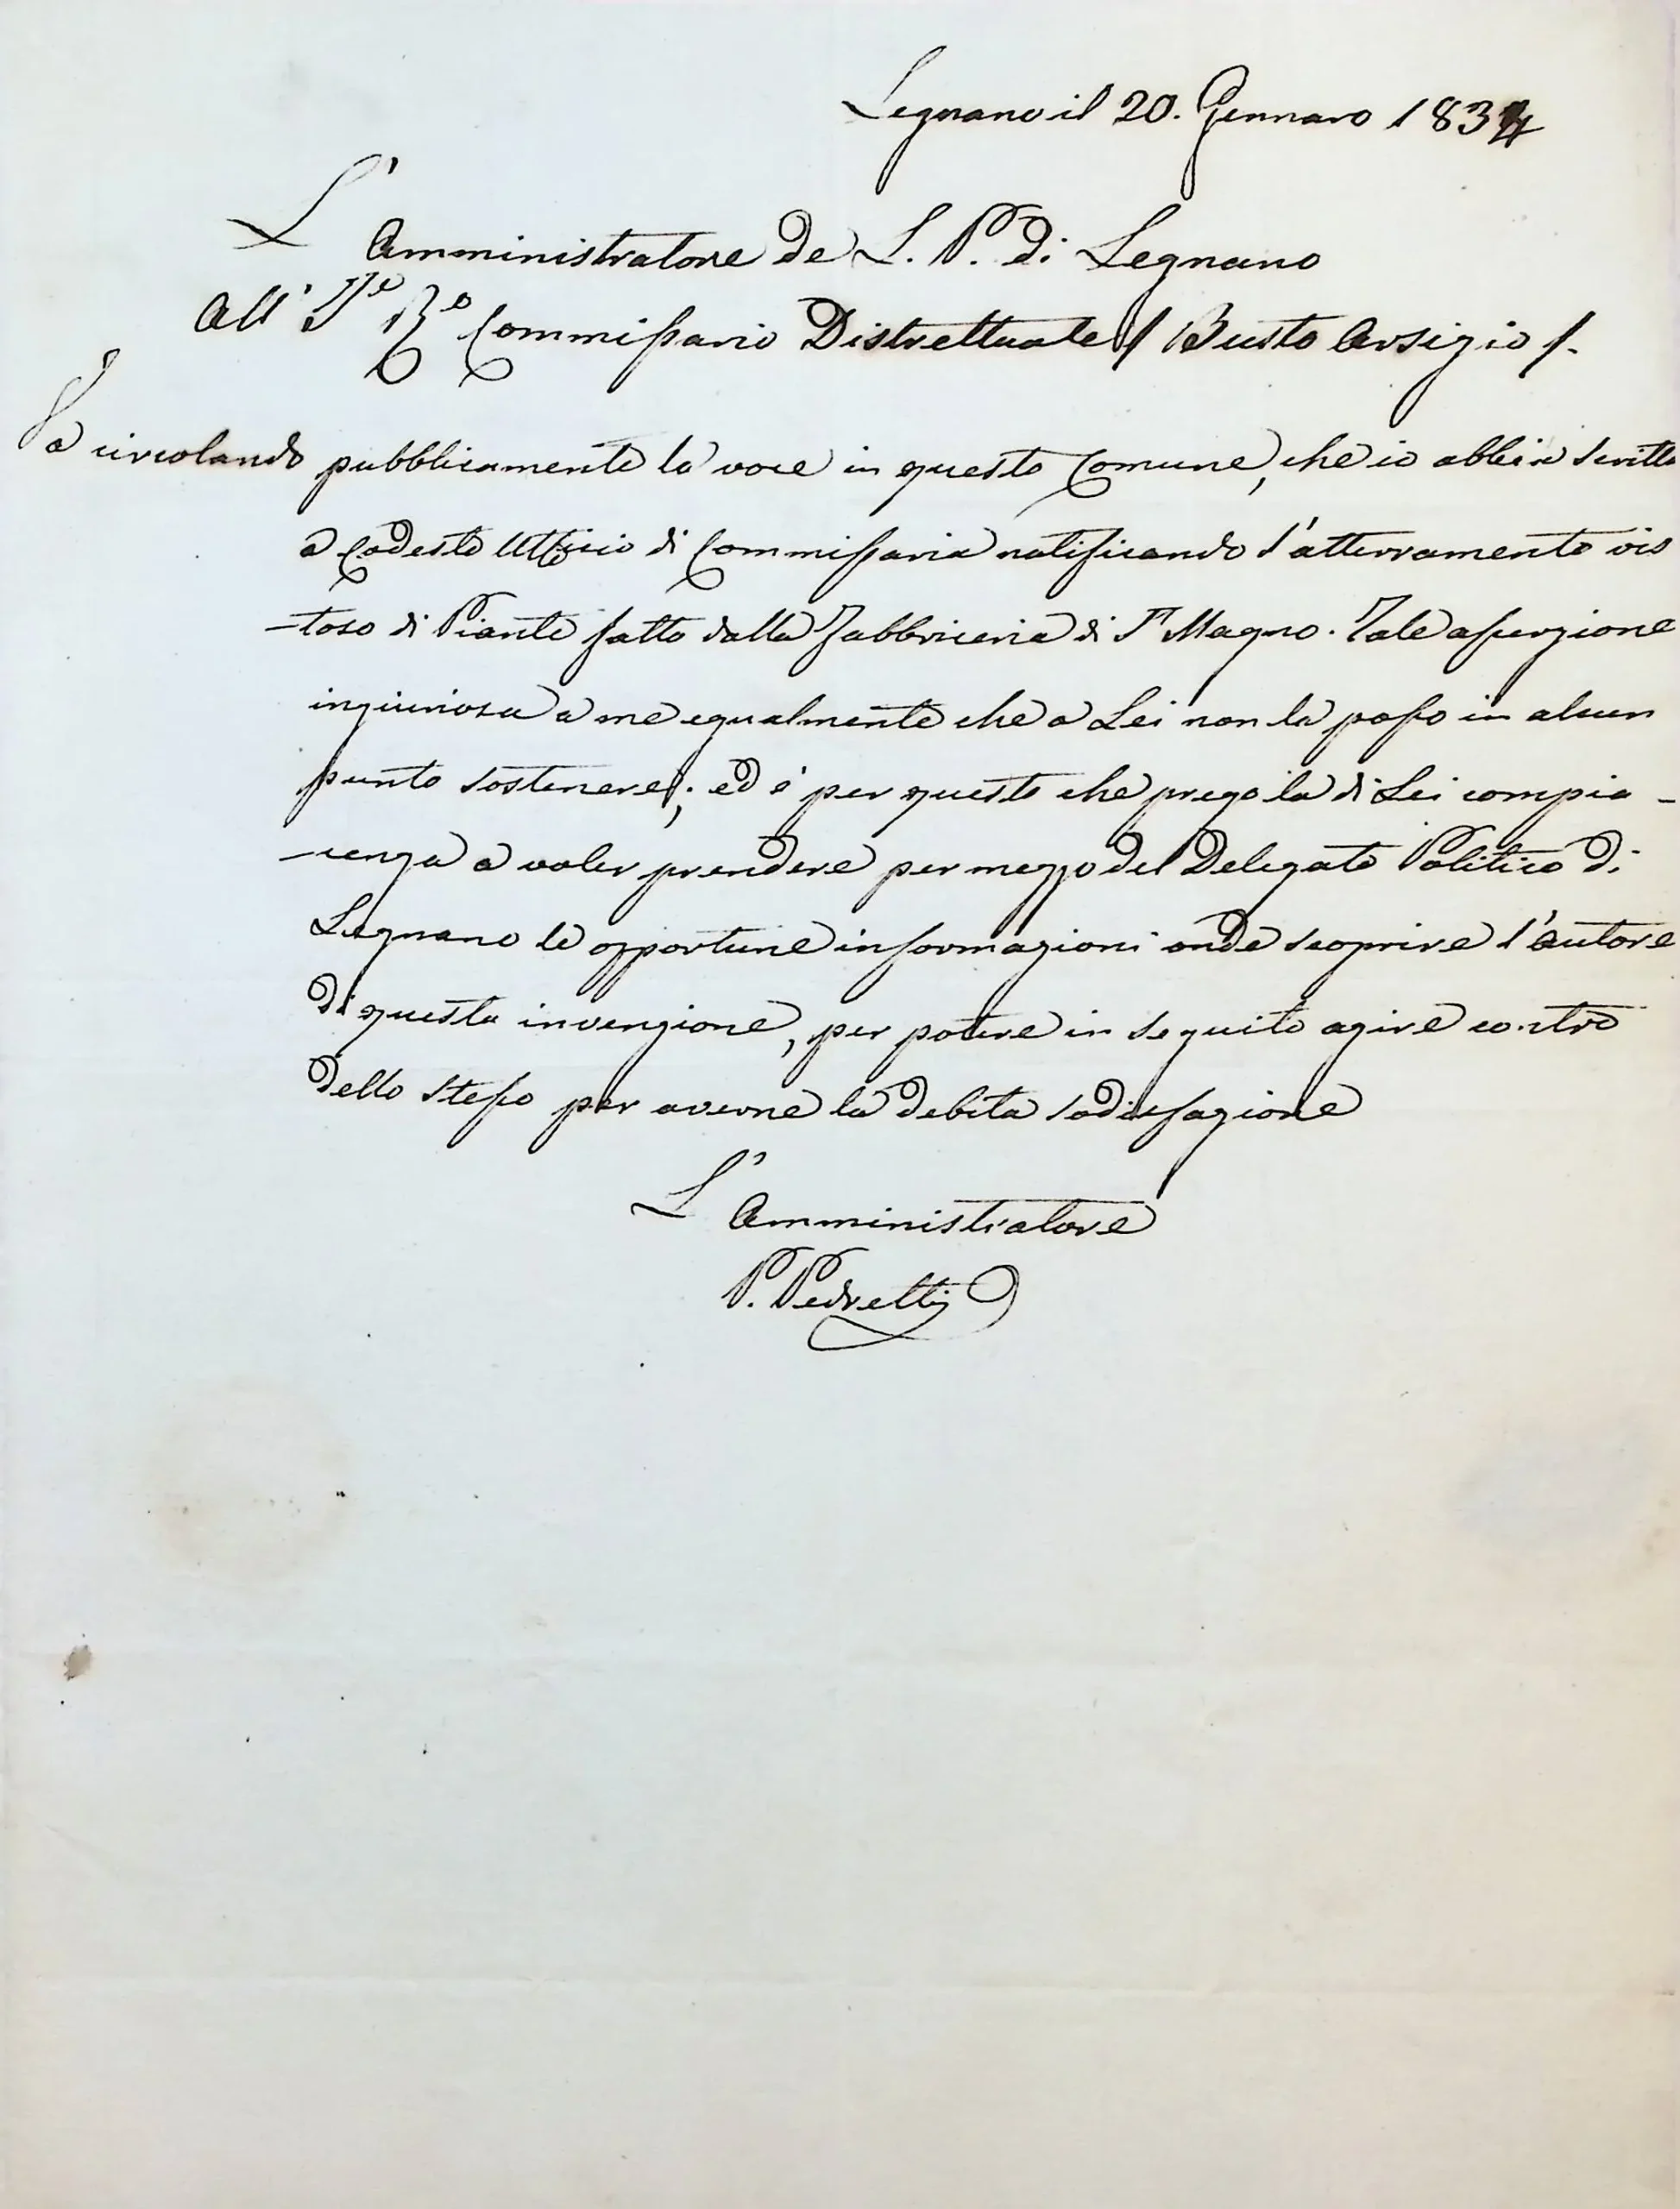 Legnano il 20. Gennaro 1834
L'
Amministratore de L. P. di Legnano
All' I.º R.º Commissario Distrettuale / Busto Arsizio /.
Va circolando pubblicamente la voce in questo Comune, che io abbia scritto
a codesto Ufficio di Commissaria notificando l'atterramento vis
-toso di Piante fatto dalla Fabbriceria di Sn Magno. Tale asserzione
ingiuriosa a me egualmente che a Lei non la posso in alcun
punto sostenere; ed è per questo che prego la di Lei compia -
-cenza a voler prendere per mezzo del Delegato Politico di
Legnano le opportune informazioni onde scoprire l'autore
di questa invenzione, per potere in seguito agire contro
dello stesso per averne la debita sodisfazione
L'
Amministratore
P. Pedretti